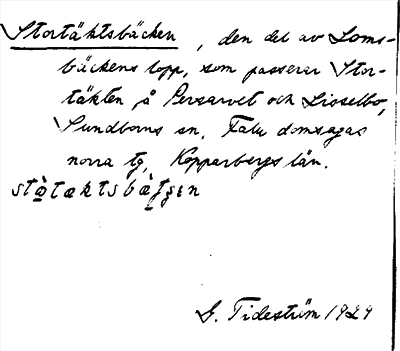 Stortäktsbäcken, den del av Loms-
bäckens lopp, som passerar Stor-
täkten å Persarvet och Lisselbo,
Sundborns sn, Falu domsagas
norra tg, Kopparbergs län.
G. Tideström 1929